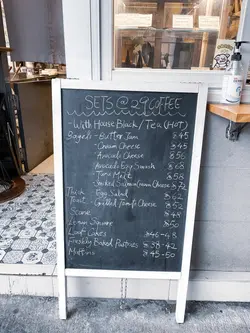 SETS @ 29 COFFEE
With House Black / Tea (HOT)
Bagels - Butter Jam 45
- Cream Cheese 45
- Avocado Cheese 56
- Avocado Egg Smash 68
- Tuna Melt 58
- Smoked Salmon Cream Cheese 72
Thick - Egg Salad 62
Toast - Grilled Tomato Cheese 52
Scone 48
Lemon Square 50
Loaf Cakes 46-48
Freshly Baked Pastries 38-42
Muffins 45-50